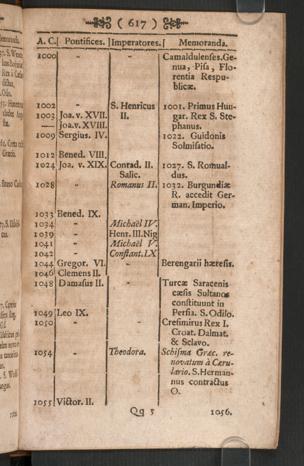 ( 617 )
A. C. Pontifices. Imperatores. Memoranda.
1000 " " Camaldulenses. Ge-
nua, Pisa, Flo-
rentia Respu-
blicæ.
1002 " S. Henricus 1001. Primus Hun-
1003 Joa. v. XVII. II. gar. Rex S. Ste-
" Joa. v. XVIII. phanus.
1009 Sergius. IV. 1022. Guidonis
Solmisatio.
1012 Bened. VIII.
1024 Joa. v. XIX. Conrad. II. 1027. S. Romual-
Salic. dus.
1028 " Romanus II. 1032. Burgundiæ
R. accedit Ger-
man. Imperio.
1033 Bened. IX.
1034 " Michaël IV.
1039 " Henr. III. Nig
1041 " Michaël V.
1042 " Constant. IX
1044 Gregor. VI. " Berengarii hæresis.
1046 Clemens II.
1048 Damasus II. " Turcæ Saracenis
cæsis Sultanos
constituunt in
1049 Leo IX. Persia. S. Odilo.
1050 " " Cresimirus Rex I.
Croat. Dalmat.
& Sclavo.
1054 " Theodora. Schisma Græc. re-
novatum à Cæru-
lario. S. Herman-
nus contractus
O.
1055 Victor. II.
Qq 5 1056.